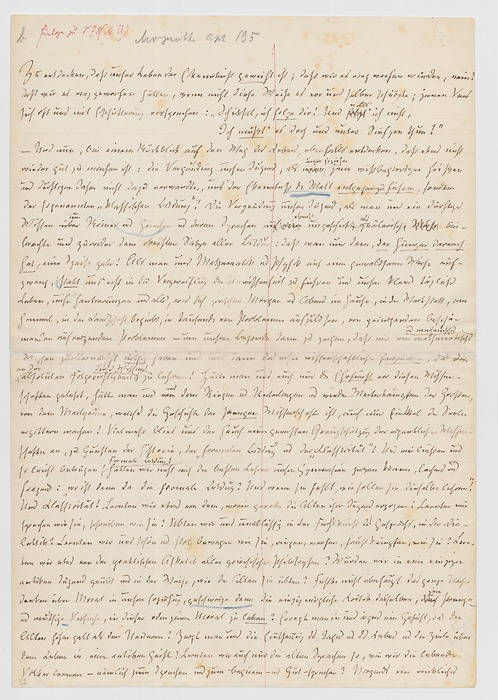 Morgenröthe 195
Zu entdecken, daß unser Leben der Erkenntniß geweiht ist; daß wir es wegwerfen würden, nein!
daß wir es weggeworfen hätten, wenn nicht diese Weihe es vor uns selber schützte; jenen Vers
sich oft und mit Erschütterung vorsprechen: „Schicksal, ich folge dir! Und wollt' ich nicht,
Ich müßt' es doch und unter Seufzen thun!"
— Und nun, bei einem Rückblick auf den Weg des Lebens, ebenfalls entdecken, daß etwas nicht
wieder gut zu machen ist: die Vergeudung unsrer Jugend, als unsre Erzieher jene wißbegierigen heißen
und durstigen Jahre nicht dazu verwandten, uns der Erkenntniß entgegenzuführen, sondern
der sogenannten „klassischen Bildung"! Die Vergeudung unsrer Jugend, als man uns ein dürftiges
Wissen um Römer und Griechen und deren Sprachen ebenso ungeschickt als quälerisch bei-
brachte und zuwider dem obersten Satze aller Bildung: daß man nur dem, der Hunger darnach
hat, eine Speise gebe! Als man uns Mathematik und Physik auf eine gewaltsame Weise auf-
zwang, statt uns erst in die Verzweiflung der Unwissenheit zu führen und unser kleines tägliches
Leben, unsre Hantierungen und alles, was sich zwischen Morgen und Abend im Hause, in der Werkstatt, am
Himmel, in der Landschaft begiebt, in Tausende von Problemen aufzulösen, von peinigenden beschä-
menden aufreizenden Problemen — um unsrer Begierde dann zu zeigen, daß wir ein mathematisches und mechanisches
Wissen zu allernächst nöthig haben und uns dann das erste wissenschaftliche Entzücken an der
absoluten Folgerichtigkeit dieses Wissens zu lehren! Hätte man uns auch nur die Ehrfurcht vor diesen Wissen-
schaften gelehrt, hätte man uns mit dem Ringen und Unterliegen und wieder Weiterkämpfen der Großen,
von dem Martyrium, welches die Geschichte der strengen Wissenschaft ist, auch nur Einmal die Seele
erzittern machen! Vielmehr blies uns der Hauch einer gewissen Geringschätzung der eigentlichen Wissen-
schaften an, zu Gunsten der Historie, der „formalen Bildung" und der „Klassicität"! Und wir ließen uns
so leicht betrügen! Formale Bildung! Hätten wir nicht auf die besten Lehrer unsrer Gymnasien zeigen können, lachend und
fragend: „wo ist denn da die formale Bildung? Und wenn sie fehlt, wie sollen sie dieselbe lehren?"
Und Klassicität! Lernten wir etwas von dem, worin gerade die Alten ihre Jugend erzogen? Lernten wir
sprechen wie sie, schreiben wie sie? Übten wir uns unablässig in der Fechtkunst des Gesprächs, in der Dia-
lektik? Lernten wir uns schön und stolz bewegen wie sie, ringen, werfen, faustkämpfen, wie sie? Lern-
ten wir etwas von der praktischen Asketik aller griechischen Philosophen? Wurden wir in einer einzigen
antiken Tugend geübt und in der Weise, wie die Alten sie übten? Fehlte nicht überhaupt das ganze Nach-
denken über Moral in unsrer Erziehung, geschweige denn die einzig mögliche Kritik desselben, jene strengen
und muthigen Versuche, in dieser oder jener Moral zu leben? Erregte man in uns irgend ein Gefühl, das den
Alten höher galt als den Neueren? Zeigte man uns die Eintheilung des Tages und des Lebens und die Ziele über
dem Leben in einem antiken Geiste? Lernten wir auch nur die alten Sprachen so, wie wir die lebender
Völker lernen — nämlich zum Sprechen und zum bequem- und Gut-sprechen? Nirgends ein wirkliches